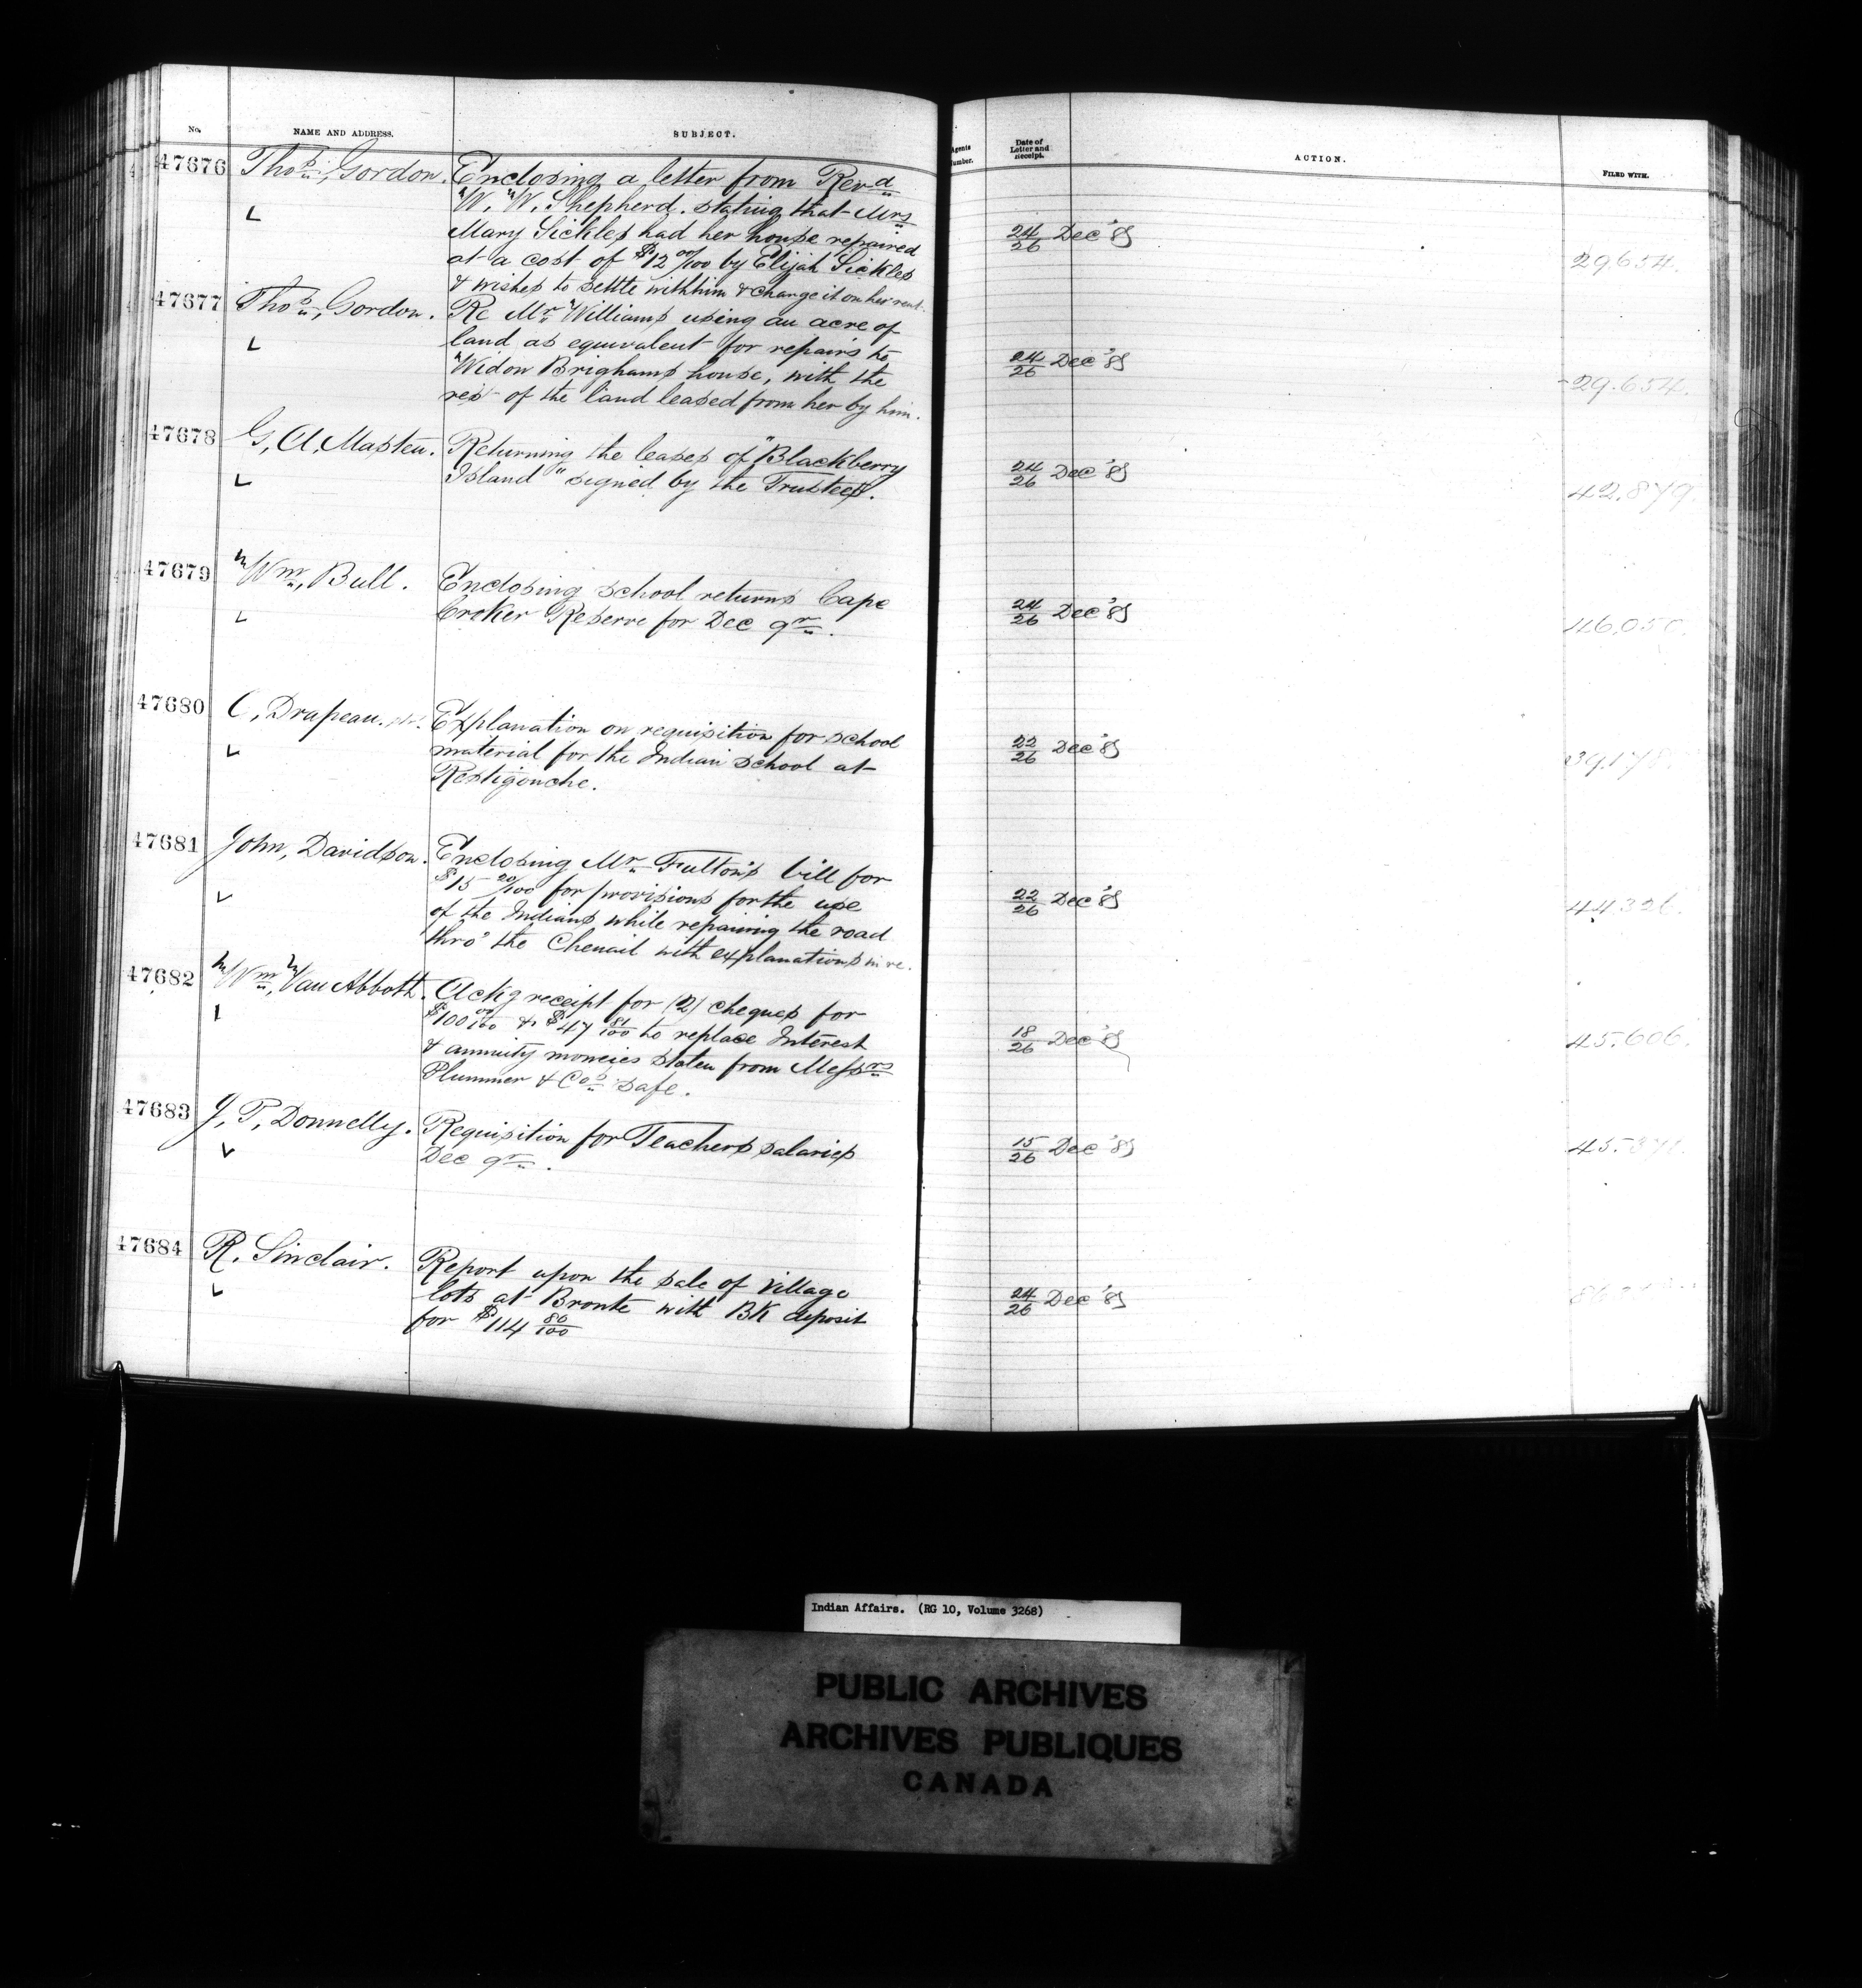 No. NAME AND ADDRESS. SUBJECT. Agents Number. Date of Letter and Receipt. ACTION. FILED WITH.
47676 Thos, Gordon. Enclosing a letter from Revd
W. W. Shepherd. stating that Mrs
Mary Sickles had her house repaired 24/26 Dec '85
at a cost of $12 00/100 by Elijah Sickles 29654.
& wishes to settle with him & charge it on her rent.
47677 Thos, Gordon. Re Mr Williams using an acre of
land as equivalent for repairs to
Widow Brighams house, with the 24/26 Dec '85 29.654.
res- of the land leased from her by him.
47678 G, A, Masten. Returning the leases of "Blackberry
Island" signed by the Trustees. 24/26 Dec '85 42.879.
47679 Wm, Bull. Enclosing school returns Cape
Croker Reserve for Dec qr. 24/26 Dec '85 46,050.
47680 C, Drapeau. Explanation on requisition for school
material for the Indian school at 22/26 Dec '85 39178
Restigouche.
47681 John, Davidson. Enclosing Mr Fulton's bill for
$15 20/100 for provisions for the use 22/26 Dec '85 44326.
of the Indians while repairing the road
thro' the Chenail with explanations in re.
47682 Wm, Van Abbott. Ackg receipt for (2) cheques for
$100 00/100 & $47 81/100 to replace Interest 18/26 Dec '85 45.606.
& annuity moneies stolen from Messrs
Plummer & Cos safe.
47683 J, P, Donnelly. Requisition for Teachers salaries 15/26 Dec '85
Dec qr.
47684 R. Sinclair. Report upon the sale of village
lots at Bronte with BK deposit 24/26 Dec '85
for $114 80/100
Indian Affairs. (RG 10, Volume 3268)
PUBLIC ARCHIVES
ARCHIVES PUBLIQUES
CANADA